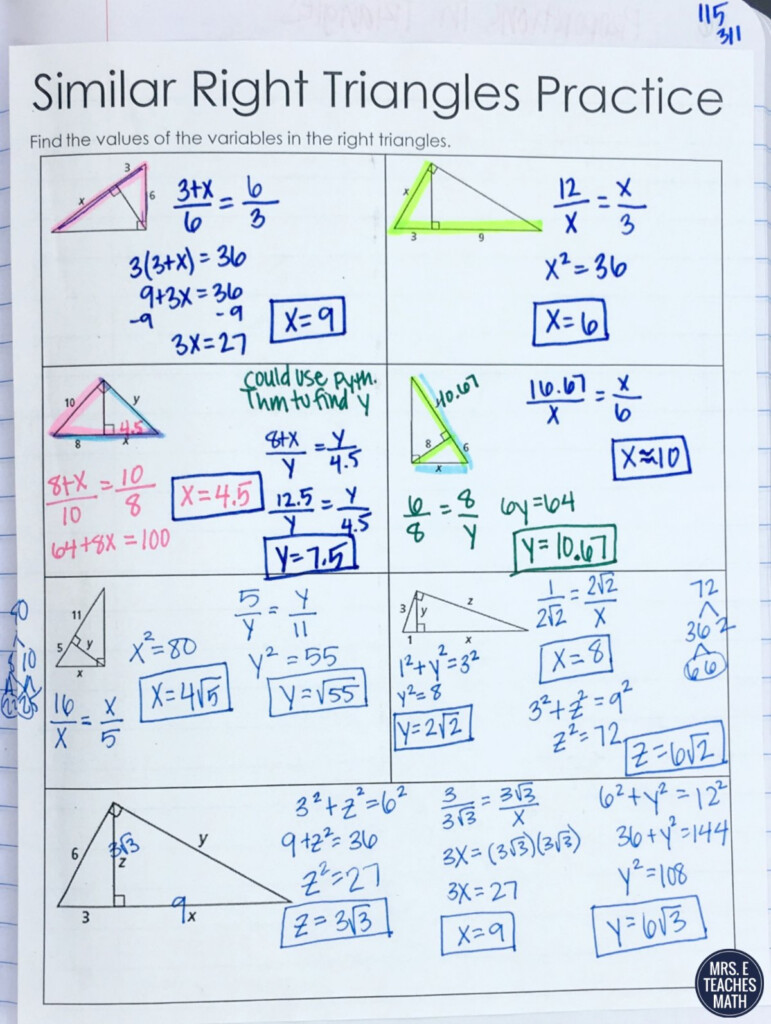 115
311
Similar Right Triangles Practice
Find the values of the variables in the right triangles.
3
x
6
3+x/6 = 6/3
3(3+x) = 36
9+3x = 36
-9 -9
3x = 27
x = 9
x
3
9
12/x = x/3
x² = 36
x = 6
10
y
8
x
4.5
could use pyth.
Thm to find y
8+x/10 = 10/8
64+8x = 100
x = 4.5
8+x/y = y/4.5
12.5/y = y/4.5
y = 7.5
10.67
8
6
x
16.67/x = x/6
x ≈ 10
6/8 = 8/y
6y = 64
y = 10.67
11
5
y
x
80
8 10
16/x = x/5
x² = 80
x = 4√5
5/y = y/11
y² = 55
y = √55
3
y
z
1
x
1/2√2 = 2√2/x
x = 8
1² + y² = 3²
y² = 8
y = 2√2
3² + z² = 9²
z² = 72
z = 6√2
72
36 2
6 6
6
3√3
z
y
3
9
x
3² + z² = 6²
9 + z² = 36
z² = 27
z = 3√3
3/3√3 = 3√3/x
3x = (3√3)(3√3)
3x = 27
x = 9
6² + y² = 12²
36 + y² = 144
y² = 108
y = 6√3
MRS. E
TEACHES
MATH